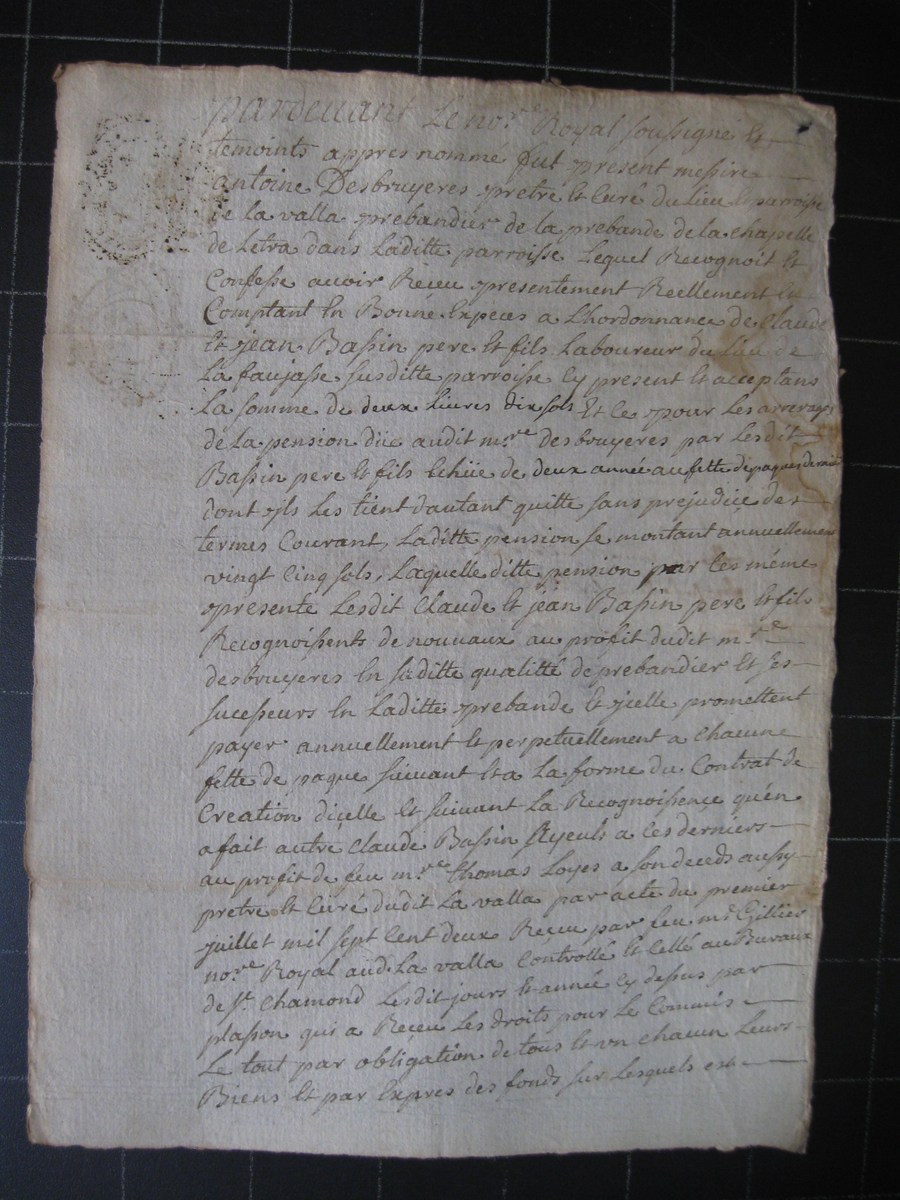 pardevant Le no.re Royal soussigné Et
temoints appres nommé fut present messire
Antoine Desbruyeres pretre Et Curé du Lieu Et parroisse
de la valla prebandier de la prebande de la chapelle
de Letra dans Laditte parroisse Lequel Recognoit Et
Confesse avoir Réceu presentement Reellement En
Comptant En Bonne Expeces a Lhordonnance de Claude
Et jean Bassin pere Et fils Laboureur du Lieu de
La faujasse susditte parroisse Cy present Et acceptans
La somme de deux Livres dix sols Et ce pour Les arrerages
de la pension düe audit m.re desbruyeres par Lesdit
Bassin pere Et fils Echüe de deux année au fette de paques
dont yls Les tient dautant quitte sans prejudice des
termes Courant, Laditte pension se montant annuellement
vingt Cinq sols, Laquelle ditte pension par Les méme
presente Lesdit Claude Et jean Bassin pere Et fils
Recognoissents de nouvaux au profit dudit m.re
desbruyeres En saditte qualitté de prebandier Et ses
sucesseurs En Laditte prebande Et ycelle promettent
payer annuellement Et perpetuellement a Chacune
fette de paque suivant Et a La forme du Contrat de
Creation dicelle Et suivant La Recognoissence qu'en
a fait autre Claude Bassin Ayeuls a Ces derniers
au profit de feu m.re thomas Loyes a son deceds aussy
pretre Et Curé dudit La valla par acte du premier
juillet mil sept Cent deux Réceu par feu m.e Gillier
no.re Royal aud. La valla Controllé Et Cellé au Buraux
de S.t Chamond Lesdit jours Et année Cy dessus par
plasson qui a Réceu Les droits pour Le Commis
Le tout par obligation de tous Et vn chacun Leurs
Biens Et par Expres des fonds sur Lesquels est